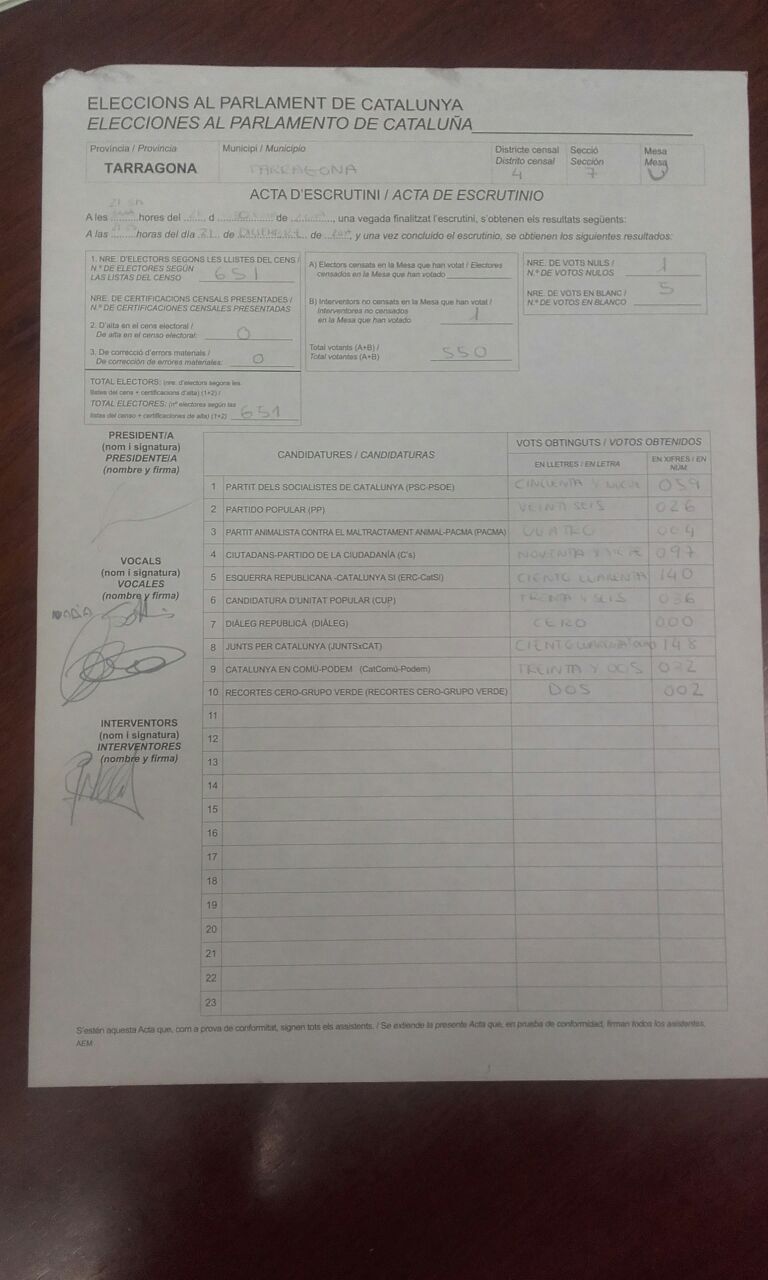 ELECCIONS AL PARLAMENT DE CATALUNYA
ELECCIONES AL PARLAMENTO DE CATALUÑA
Província / Provincia
TARRAGONA
Municipi / Municipio
TARRAGONA
Districte censal
Distrito censal
4
Secció
Sección
7
Mesa
Mesa
U
ACTA D'ESCRUTINI / ACTA DE ESCRUTINIO
A les hores del d de , una vegada finalitzat l'escrutini, s'obtenen els resultats següents:
A las horas del día 21 de DICIEMBRE de , y una vez concluido el escrutinio, se obtienen los siguientes resultados:
1. NRE. D'ELECTORS SEGONS LES LLISTES DEL CENS /
N.º DE ELECTORES SEGÚN
LAS LISTAS DEL CENSO 651
NRE. DE CERTIFICACIONS CENSALS PRESENTADES /
N.º DE CERTIFICACIONES CENSALES PRESENTADAS
2. D'alta en el cens electoral /
De alta en el censo electoral: 0
3. De correcció d'errors materials /
De corrección de errores materiales: 0
TOTAL ELECTORS: (nre. d'electors segons les
llistes del cens + certificacions d'alta) (1+2) /
TOTAL ELECTORES: (nº electores según las
listas del censo + certificaciones de alta) (1+2) 651
A) Electors censats en la Mesa que han votat / Electores
censados en la Mesa que han votado
B) Interventors no censats en la Mesa que han votat /
Interventores no censados
en la Mesa que han votado 1
Total votants (A+B) /
Total votantes (A+B) 550
NRE. DE VOTS NULS /
N.º DE VOTOS NULOS 1
NRE. DE VOTS EN BLANC /
N.º DE VOTOS EN BLANCO 5
PRESIDENT/A
(nom i signatura)
PRESIDENTE/A
(nombre y firma)
VOCALS
(nom i signatura)
VOCALES
(nombre y firma)
INTERVENTORS
(nom i signatura)
INTERVENTORES
(nombre y firma)
CANDIDATURES / CANDIDATURAS
VOTS OBTINGUTS / VOTOS OBTENIDOS
EN LLETRES / EN LETRA
EN XIFRES / EN NUM
1 PARTIT DELS SOCIALISTES DE CATALUNYA (PSC-PSOE) CINCUENTA Y NUEVE 059
2 PARTIDO POPULAR (PP) VEINTISEIS 026
3 PARTIT ANIMALISTA CONTRA EL MALTRACTAMENT ANIMAL-PACMA (PACMA) CUATRO 004
4 CIUTADANS-PARTIDO DE LA CIUDADANÍA (C's) NOVENTA Y SIETE 097
5 ESQUERRA REPUBLICANA -CATALUNYA SI (ERC-CatSI) CIENTO CUARENTA 140
6 CANDIDATURA D'UNITAT POPULAR (CUP) TREINTA Y SEIS 036
7 DIÀLEG REPUBLICÀ (DIÀLEG) CERO 000
8 JUNTS PER CATALUNYA (JUNTSxCAT) CIENTO CUARENTA Y OCHO 148
9 CATALUNYA EN COMÚ-PODEM (CatComú-Podem) TREINTA Y DOS 032
10 RECORTES CERO-GRUPO VERDE (RECORTES CERO-GRUPO VERDE) DOS 002
11
12
13
14
15
16
17
18
19
20
21
22
23
S'estén aquesta Acta que, com a prova de conformitat, signen tots els assistents. / Se extiende la presente Acta que, en prueba de conformidad, firman todos los asistentes.
AEM